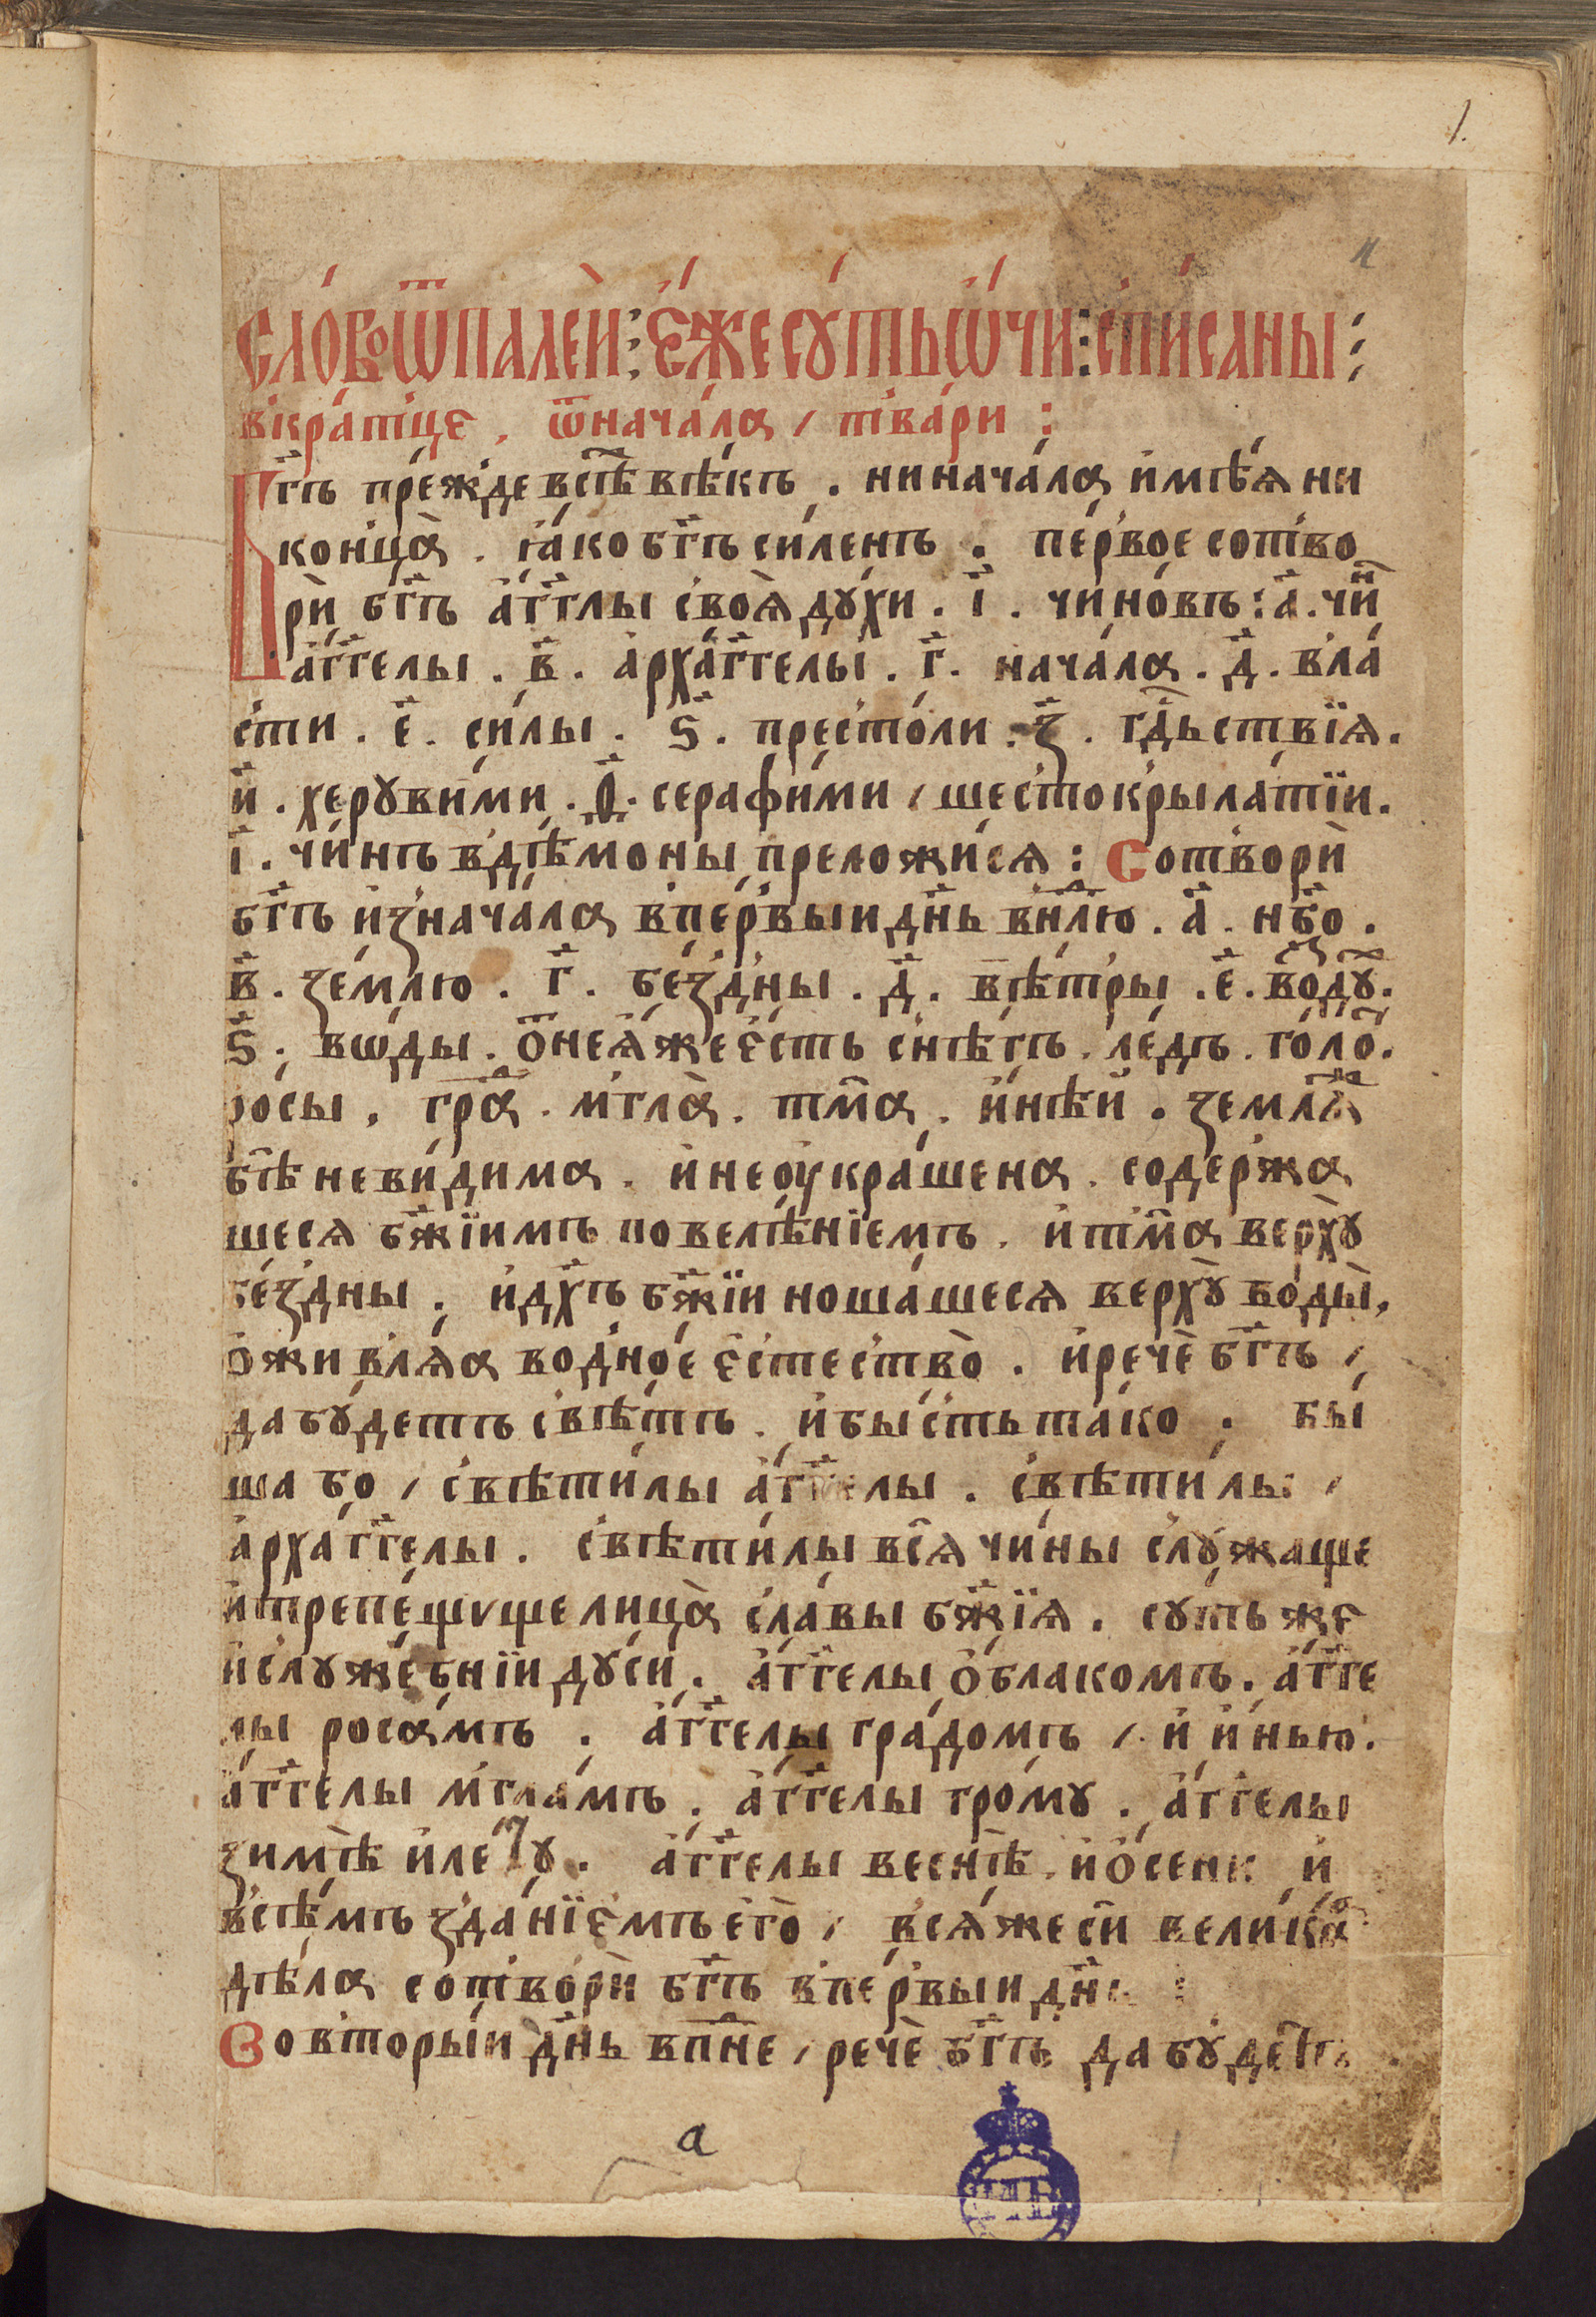 1.
сло́во ѿ пале́и : є҆́же сꙋ́ть ѿчи : спи́саны :
вкра́тце . ѿ нача́ла , тва́ри :
Бг҃ъ пре́жде всѣ̑ вѣ́къ . ни нача́ла и҆мѣ́ѧ ни
конца̀ . ꙗ҆́ко бг҃ъ си́ленъ . пе́рвое сотво
рѝ бг҃ъ а҆́гг҃лы своѧ̀ дꙋ́хи . і҃ . чино́въ : а҃ . чи̑н
а҆́гг҃елы . в҃ . а҆рха́гг҃елы . г҃ . нача́ла . д҃ . вла́
сти . є҃ . си́лы . ѕ҃ . престо́ли . з҃ . гд҃ьствїѧ .
и҃ . херꙋви́ми . ѳ҃ . серафи́ми , шестокрыла́тїи .
і҃ . чи́нъ в дѣ́моны преложи́сѧ : Сотворѝ
бг҃ъ и҆знача́ла в пе́рвыи дн҃ь в нл҃ю . а҃ . нб҃о .
в҃ . зе́млю . г҃ . бе́здны . д҃ . вѣ́тры . є҃ . во́дꙋ .
ѕ҃ . вѡ́ды . ѿ неѧ́же є҆́сть снѣ́гъ . ле́дъ . го́ло .
росы . гра . мгла̀ . тм҃а . и҆́нѣй . землѧ̀
бѣ̀ неви́дима . и҆ неоу҆кра́шена . содержа
щесѧ бж҃їимъ повелѣ́нїемъ . и҆ тм҃а верхꙋ̀
бе́здны . и҆ дх҃ъ бж҃їи ноша́шесѧ верхꙋ̀ воды̀ ,
ѡ҆живлѧ́ѧ во́дное є҆стество̀ . и҆ речѐ бг҃ъ ,
да бꙋ́детъ свѣ́тъ . и҆ бы́сть та́ко . бы́
ша бо , свѣти́лы а҆́гг҃елы . свѣти́лы ,
а҆рха́гг҃елы . свѣти́лы всѧ̀ чи́ны слꙋ́жаще
и҆ трепе́щꙋще лица̀ сла́вы бж҃їѧ . сꙋ́ть же
и҆ слꙋже́бнїи дꙋ́си . а҆́гг҃елы ѻ҆́блакомъ . а҆́гг҃е
лы роса́мъ . а҆́гг҃елы гра́домъ , и҆ и҆́нью .
а҆́гг҃елы мгла́мъ . а҆́гг҃елы гро́мꙋ . а҆́гг҃елы
зимѣ̀ и҆ ле́тꙋ . а҆́гг҃елы веснѣ̀ . и҆ ѻ҆́сени и҆
всѣ́мъ зда́нїємъ є҆го̀ , всѧ́ же сѝ вели́каѧ
дѣ́ла сотворѝ бг҃ъ в пе́рвыи дн҃ь :
Во вторы́и дн҃ь в пн҃е , речѐ бг҃ъ да бꙋ́детъ
а